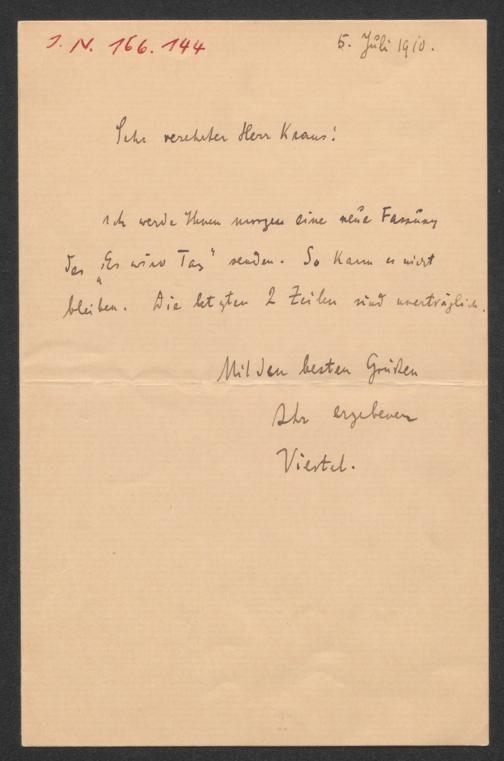 I. N. 166.144
5. Juli 1910.
Sehr verehrter Herr Kraus!
ich werde Ihnen morgen eine neue Fassung
des „Es wird Tag“ senden. So kann es nicht
bleiben. Die letzten 2 Zeilen sind unerträglich.
Mit den besten Grüßen
Ihr ergebener
Viertel.